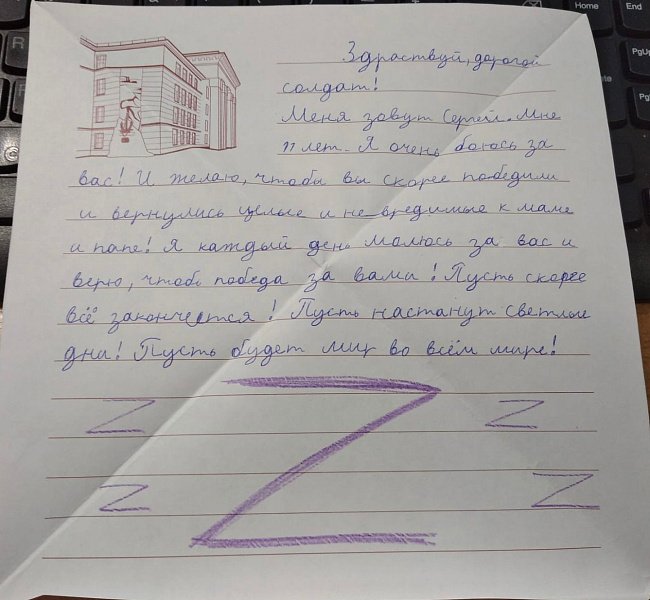 Здраствуй, дорогой
солдат!
Меня зовут Сергей. Мне
11 лет. Я очень боюсь за
вас! И желаю, чтобы вы скорее победили
и вернулись целые и не вредимые к маме
и папе! Я каждый день молюсь за вас и
верю, чтобы победа за вами! Пусть скорее
всё закончется! Пусть настанут светлые
дни! Пусть будет мир во всём мире!
Z
Z Z
Z Z
Home End
PgUp
PgDn